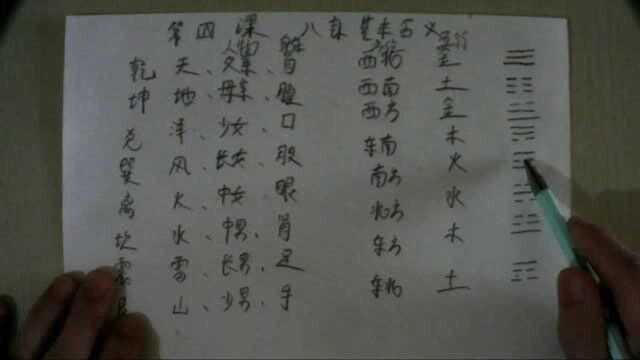 第四课 八卦基本百义
人物 五行
乾 天、父亲、首 西北 金
坤 地、母亲、腹 西南 土
兑 泽、少女、口 西方 金
巽 风、长女、股 东南 木
离 火、中女、眼 南方 火
坎 水、中男、肾 北方 水
震 雷、长男、足 东方 木
艮 山、少男、手 东北 土